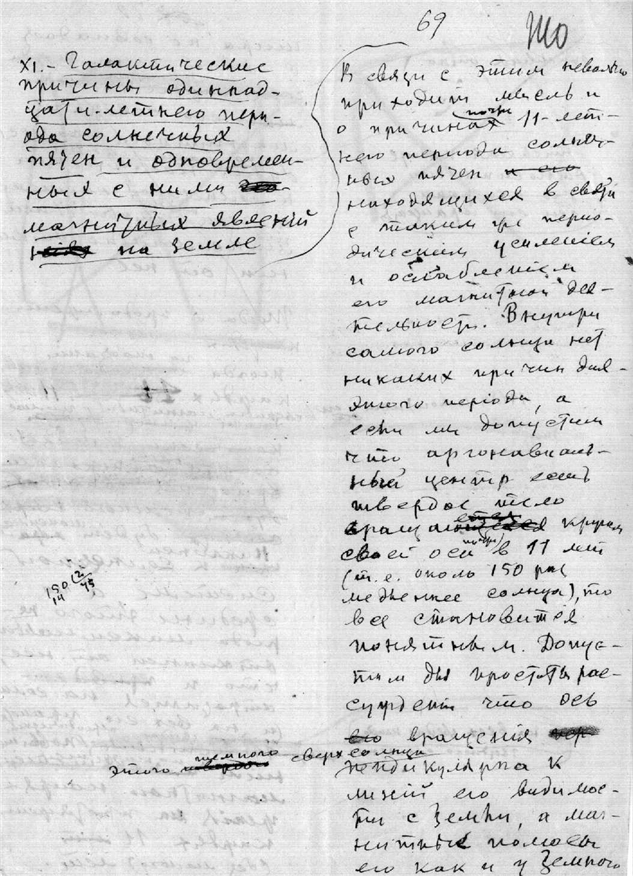 69
XI.- Галактические
причины одиннад-
цати-летнего пери-
ода солнечных
пятен и одновремен-
ных с ними
магнитных явлений
на Земле
В связи с этим невольно
приходит мысль и
о причинах почти 11-лет-
него периода солнеч-
ных пятен и его
находящихся в связи
с таким же перио-
дическим усилением
и ослаблением
его магнитной дея-
тельности. Внутри
самого солнца нет
никаких причин для
этого периода, а
если мы допустим
что аргонавталь-
ный центр есть
твердое тело
кругом
своей оси (почти) в 11 лет
(т.е. около 150 раз
медленнее солнца), то
все становится
понятным. Допус-
тим для простоты рас-
суждения что ось
его вращения пер-
этого темного сверхсолнца
пендикулярна к
линии его видимос-
ти с Земли, а маг-
нитные полюсы
его как и у Земного
150 12
14 45